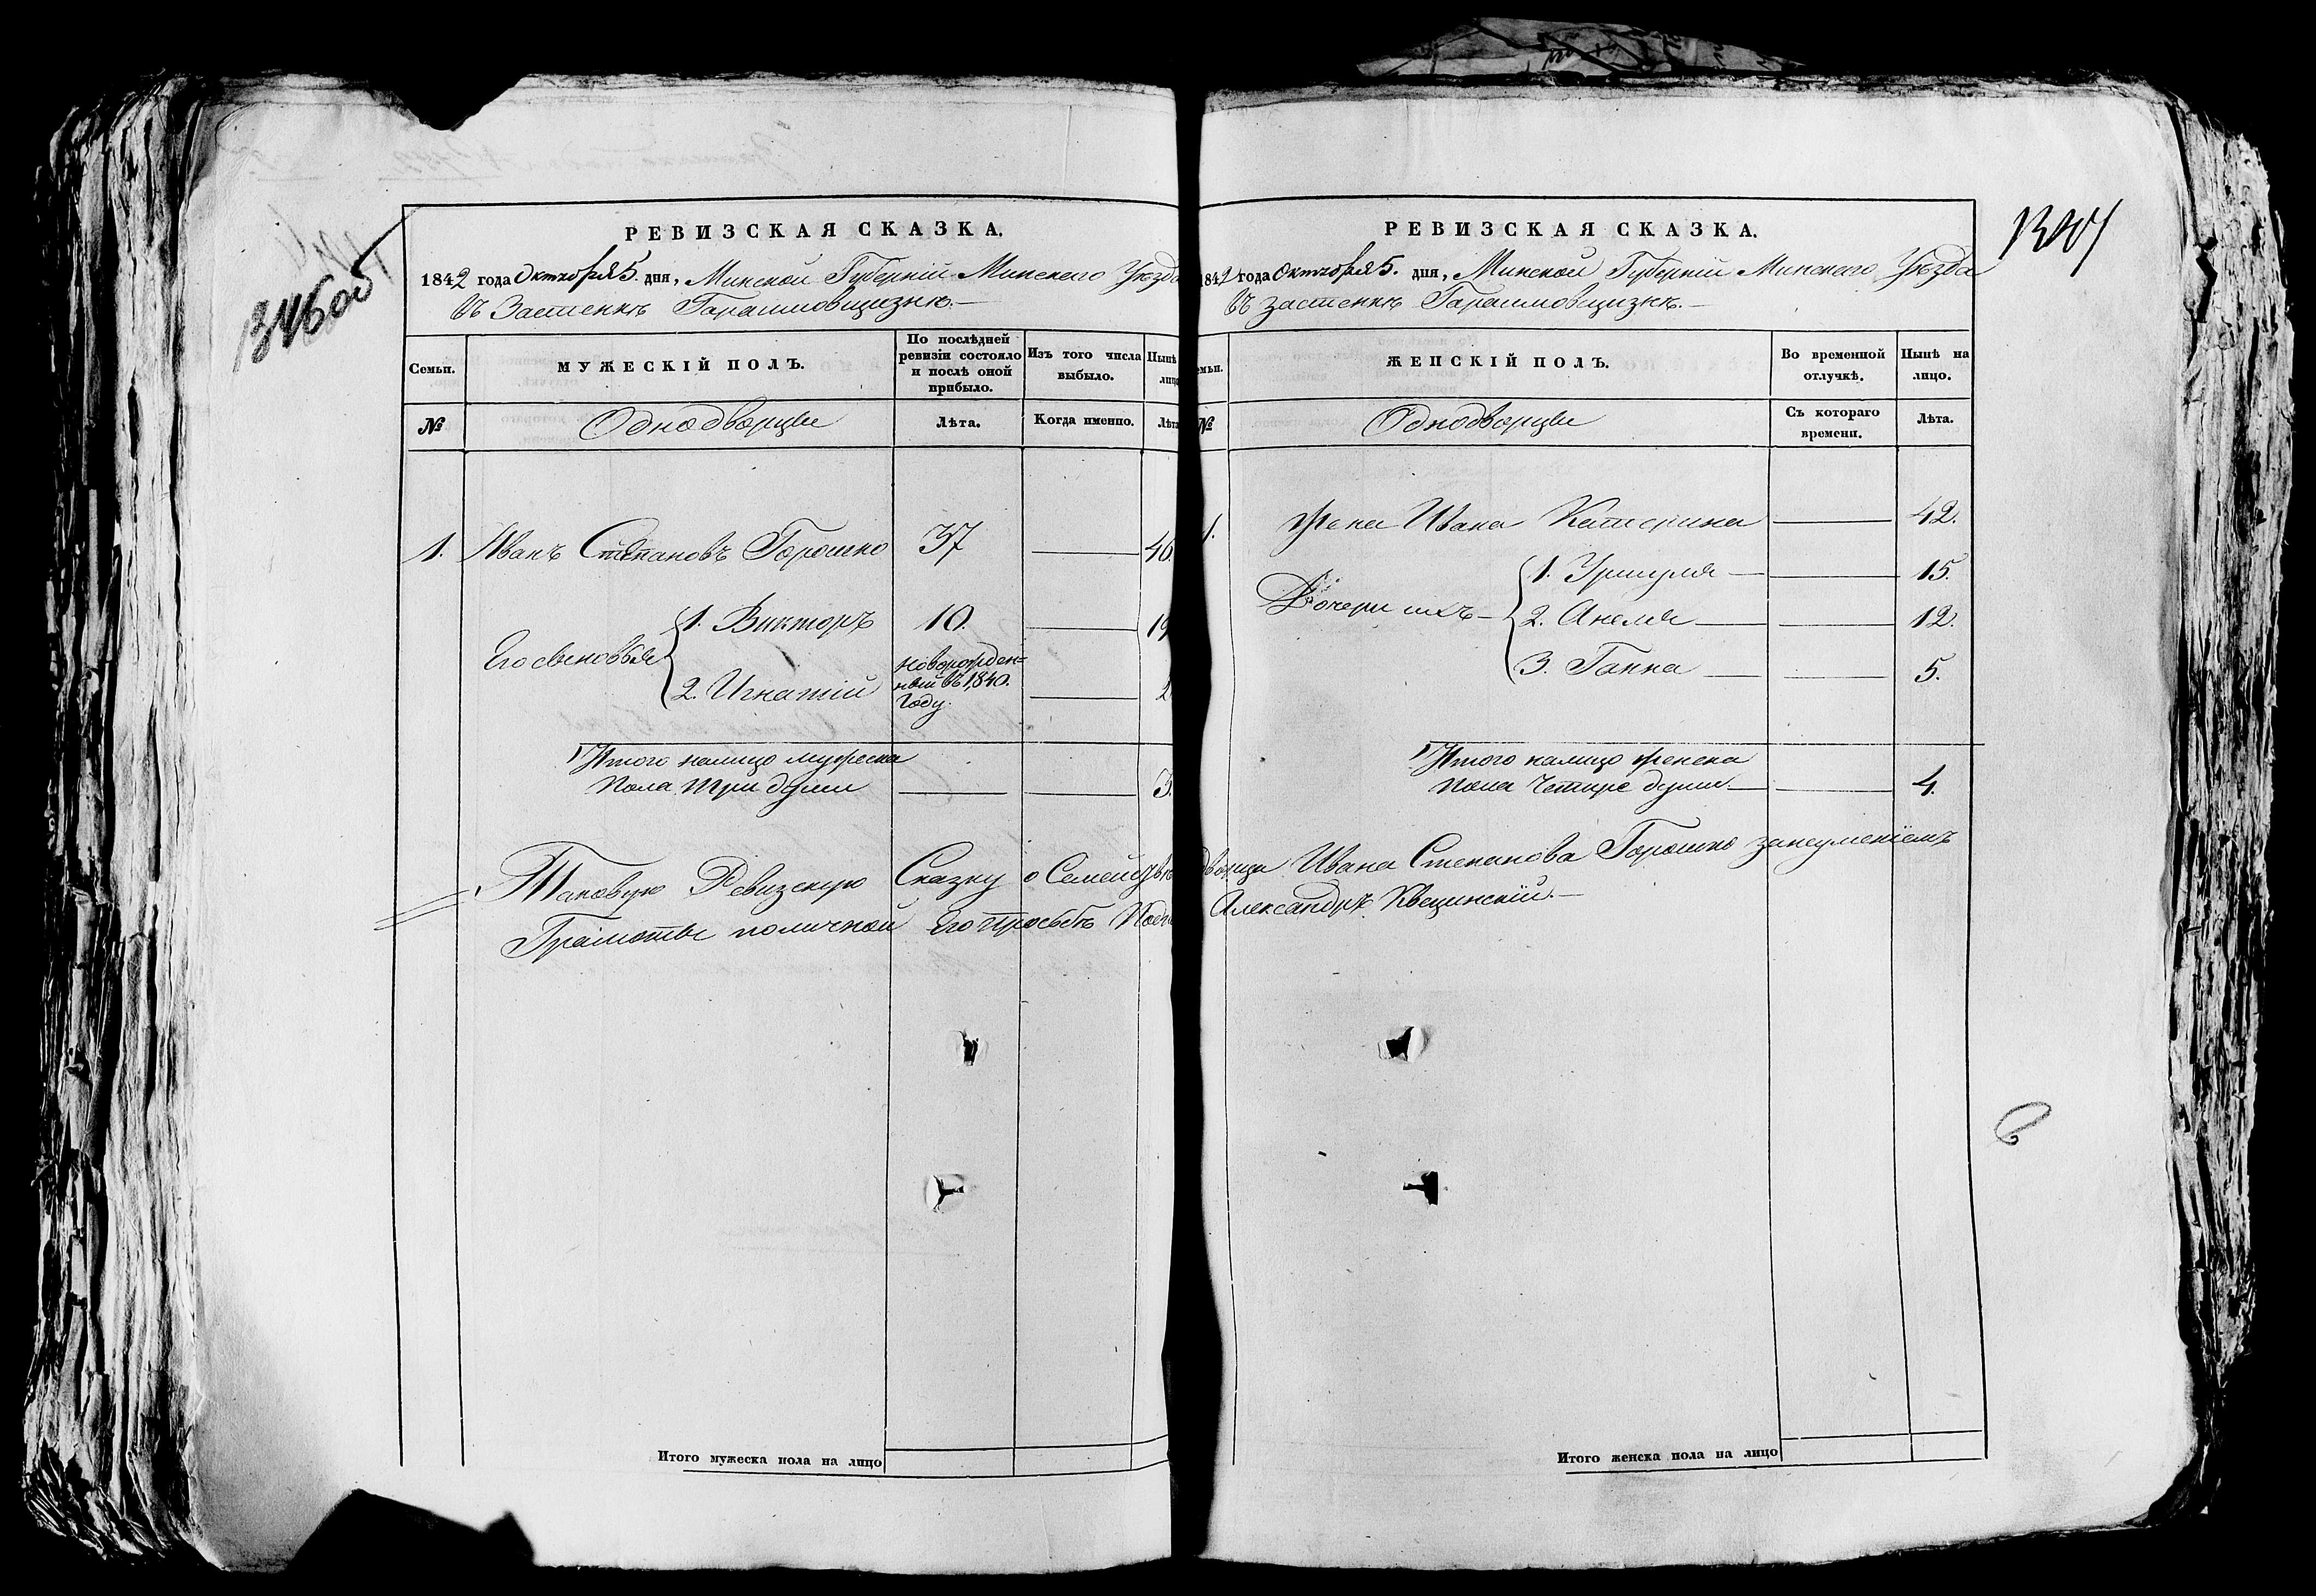 1346 об
РЕВИЗСКАЯ СКАЗКА.
1842 года Октября 5. дня, Минской Губерніи Минскаго Уѣзда
въ Застенкѣ Гарашмовщизнѣ.—
Семьи.
МУЖЕСКІЙ ПОЛЪ.
По послѣдней ревизіи состояло и послѣ оной прибыло.
Изъ того числа выбыло.
Нынѣ лицо
№
Однодворцы
Лѣта.
Когда именно.
Лѣта
1. Иванъ Степановъ Горошко 37 — 46.
Его сыновья
1. Викторъ 10. — 19
2. Игнатій Новорожден=
ный въ 1840.
Году. — 2
Итого налицо мужеска
Пола три души — — 3.
Таковую Ревизскую Сказку о Семействѣ
Грамоты поличной Его просьбѣ
1347
РЕВИЗСКАЯ СКАЗКА.
1842 года Октября 5. дня, Минской Губерніи Минскаго Уѣзда
въ застенкѣ Гарашмовщизнѣ.—
семьи.
ЖЕНСКІЙ ПОЛЪ.
Во временной отлучкѣ.
Нынѣ на лицо.
№
Однодворцы
Съ котораго времени.
Лѣта.
1. Жена Ивана Катерина — 42.
Дочери ихъ —
1. Уршуля — — 15.
2. Анеля — — 12.
3. Ганна — — 5.
Итого налицо женска
пола Четыре души. — — 4.
дворца Ивана Степанова Горошко занеумѣніемъ
Александръ Квецинскій.—
Итого мужеска пола на лицо
Итого женска пола на лицо